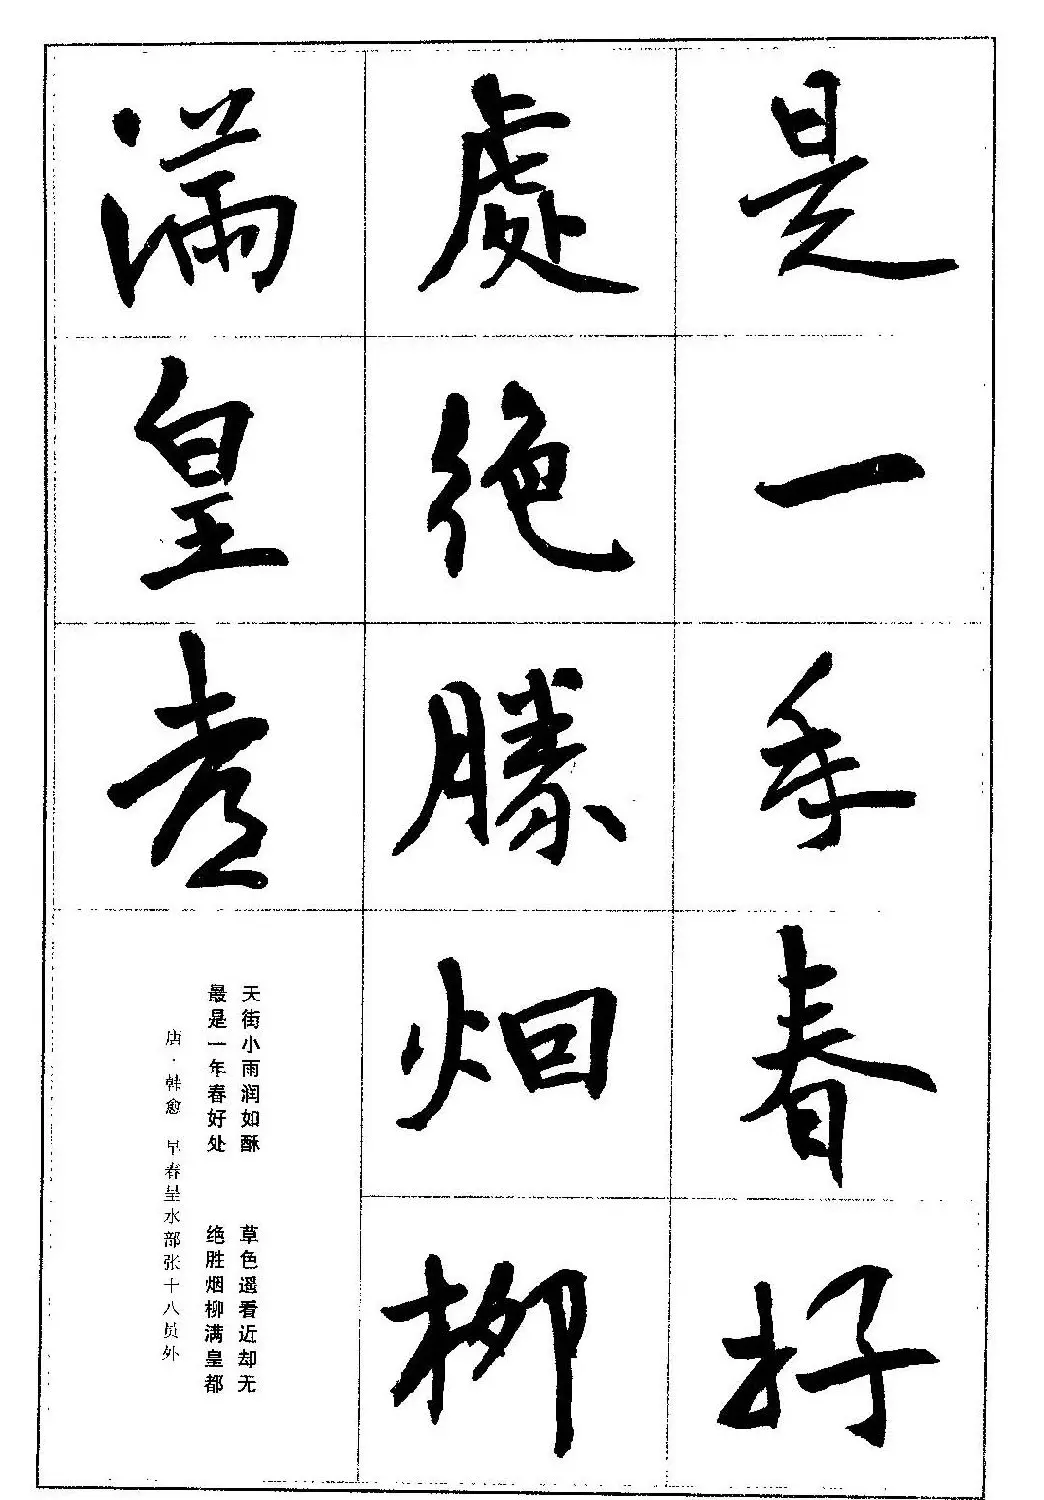 是一年春好
處絶勝烟柳
满皇都
天街小雨润如酥 草色遥看近却无
最是一年春好处 绝胜烟柳满皇都
唐·韩愈 早春呈水部张十八员外